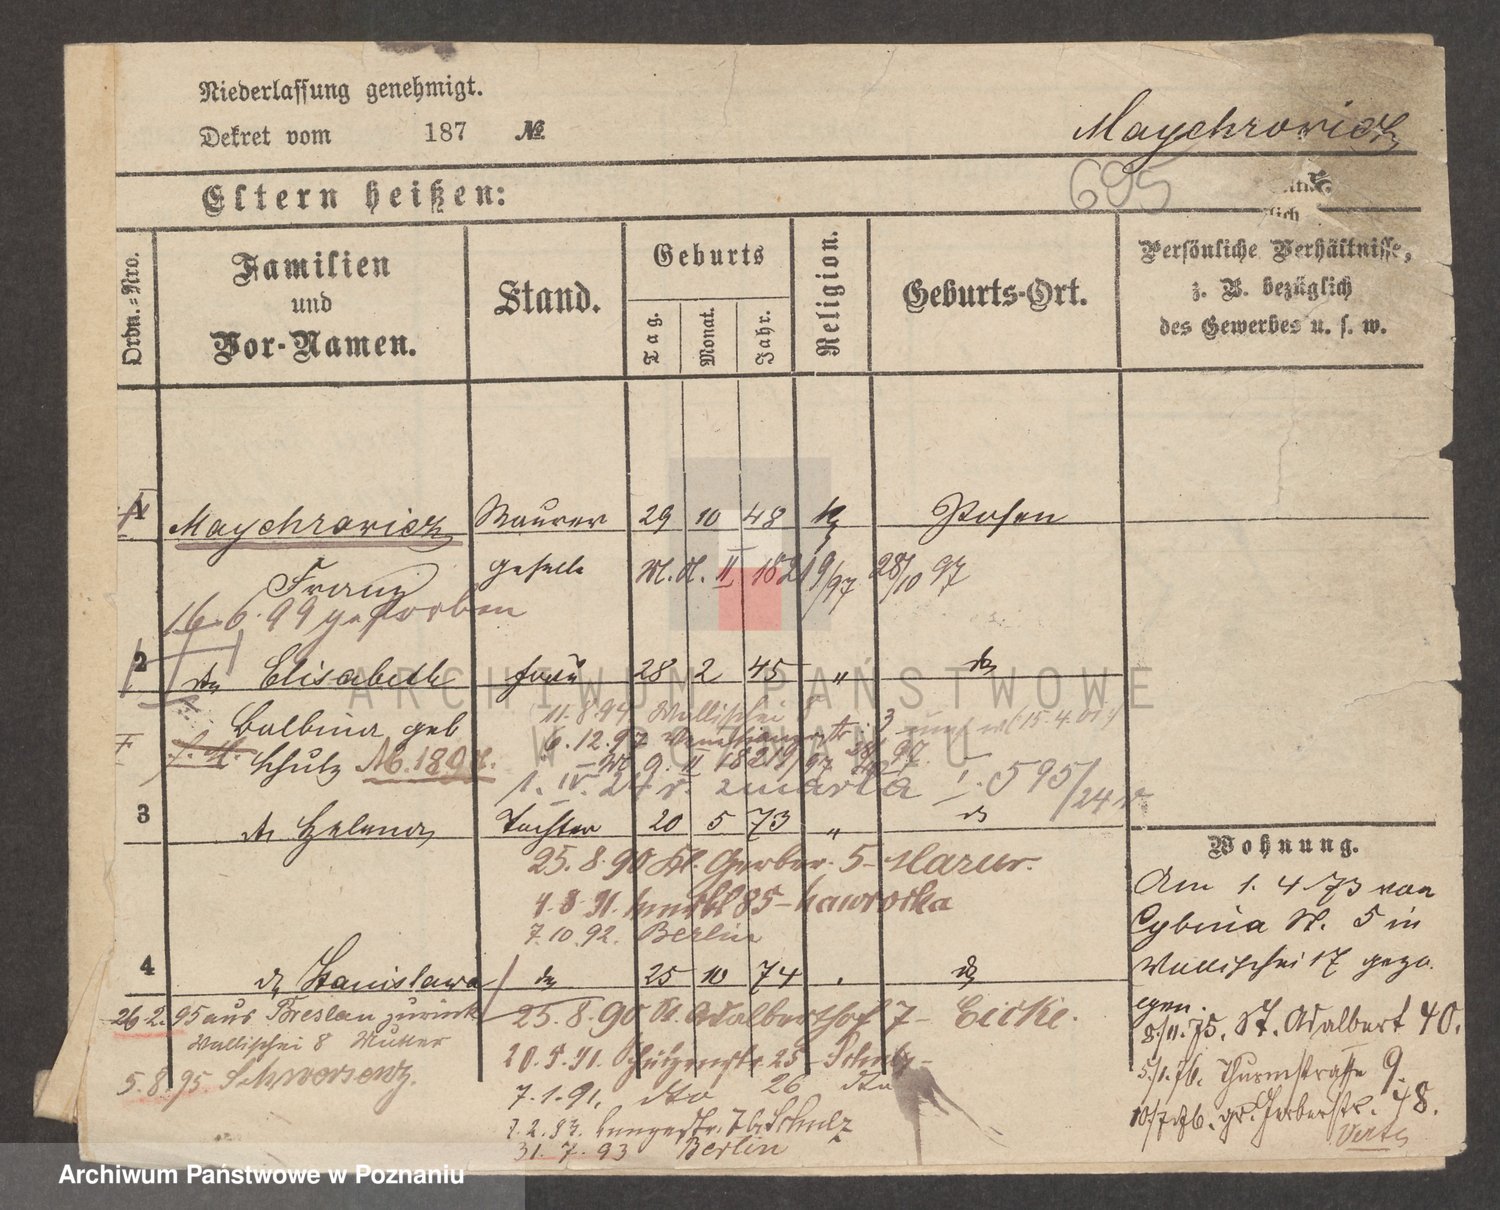 Niederlassung genehmigt.
Dekret vom 187 №
Maychrowicz
695
Eltern heißen:
Ordn.=Nro.
Familien
und
Vor-Namen.
Stand.
Geburts
Tag.
Monat.
Jahr.
Religion.
Geburts-Ort.
Persönliche Verhältnisse,
z. B. bezüglich
des Gewerbes u. s. w.
1 Maychrowicz Maurer 29 10 48 k Posen
Franz geselle II 1821 9/97 28/10 97
16. 6. 99 gestorben
2 Elisabeth frau 28 2 45 " do
Balbina geb
Schulz
11. 8. 94 Wallischei 8
6. 12. 97
1. IV. 24 r. zmarła I. 595/24 r.
3 Helena Tochter 20 5 73 " do
25. 8. 90 Kl. Gerber. 5 - Mazur.
4. 8. 91. 85 - Nawrocka
7. 10. 92. Berlin
4 do Stanislawa do 25 10 74 do
26. 2. 95 aus Breslau zurück
Wallischei 8 Mutter
5. 8. 95 Schwersenz.
25. 8. 90 Kl. Adalberthof 7 - Eicke.
20. 5. 91. Schützenstr. 25 - Schulz -
7. 1. 91. dto 26 dto
31. 7. 93 Berlin
Wohnung.
Am 1. 4 73 von
Cybina N. 5 in
Wallischei 17 gezo.
gen.
8/11. 75. St. Adalbert 40.
5/1. 76. Thurmstrasse 9.
10/7 76. gr. Gerberstr. 48.
Verte
ARCHIWUM PAŃSTWOWE
W POZNANIU
Archiwum Państwowe w Poznaniu